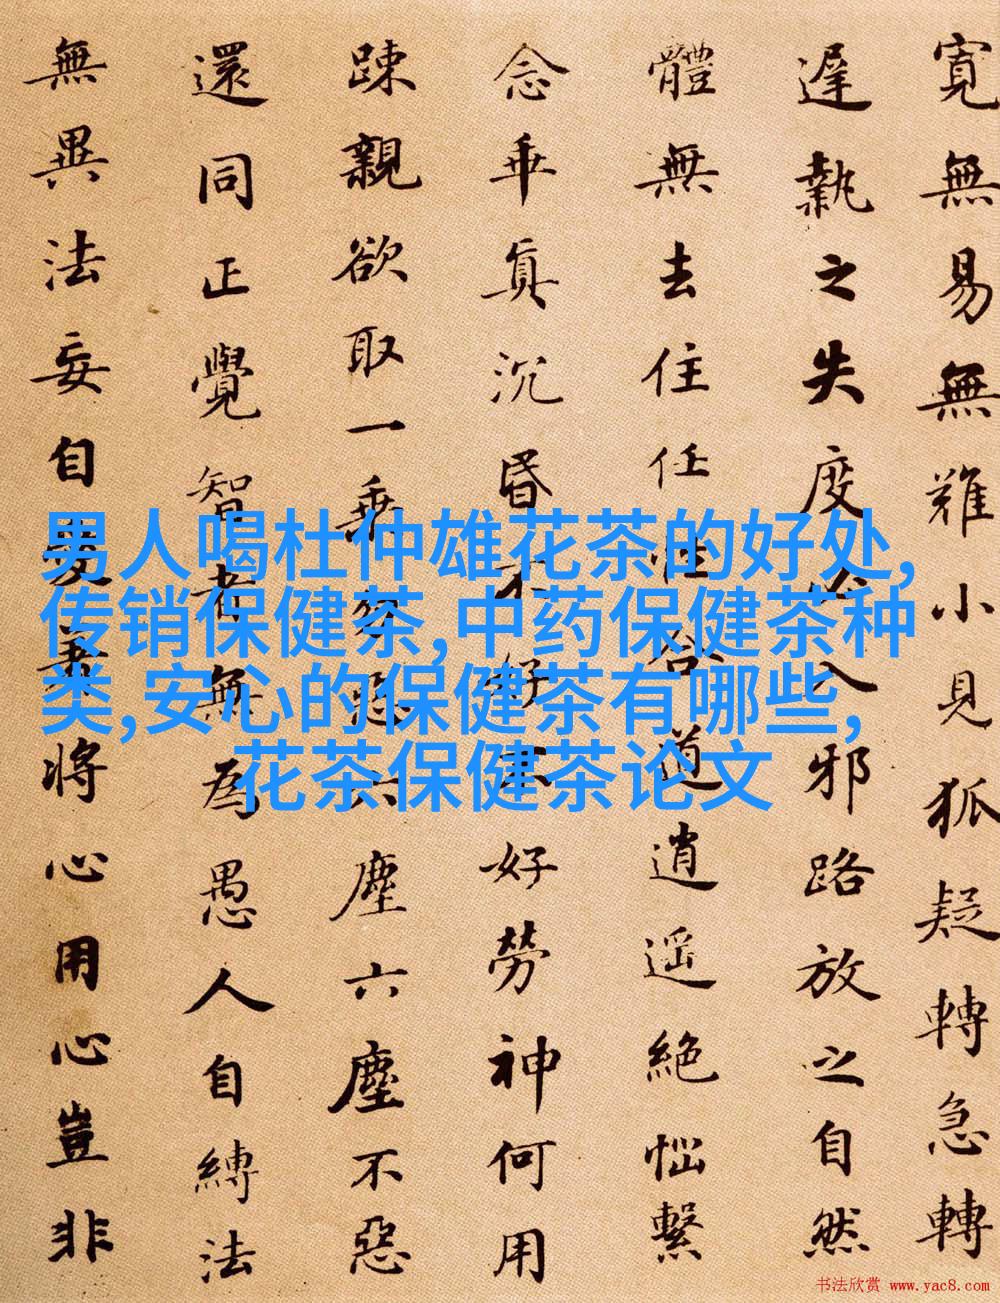 寬無易無難小見狐疑轉急轉
遅執之失度必入邪路放之自然
體無去住任性合道逍遥絶惱繫
念乖真沉昏不好不好勞神何用
踈親欲取一乘勿惡六塵六塵不惡
還同正覺智者無為愚人自縛法
無異法妄自愛著將心用心豈非
男人喝杜仲雄花茶的好处,
传销保健茶,中药保健茶种
类,安心的保健茶有哪些,
花茶保健茶论文
书法欣赏 www.yac8.com